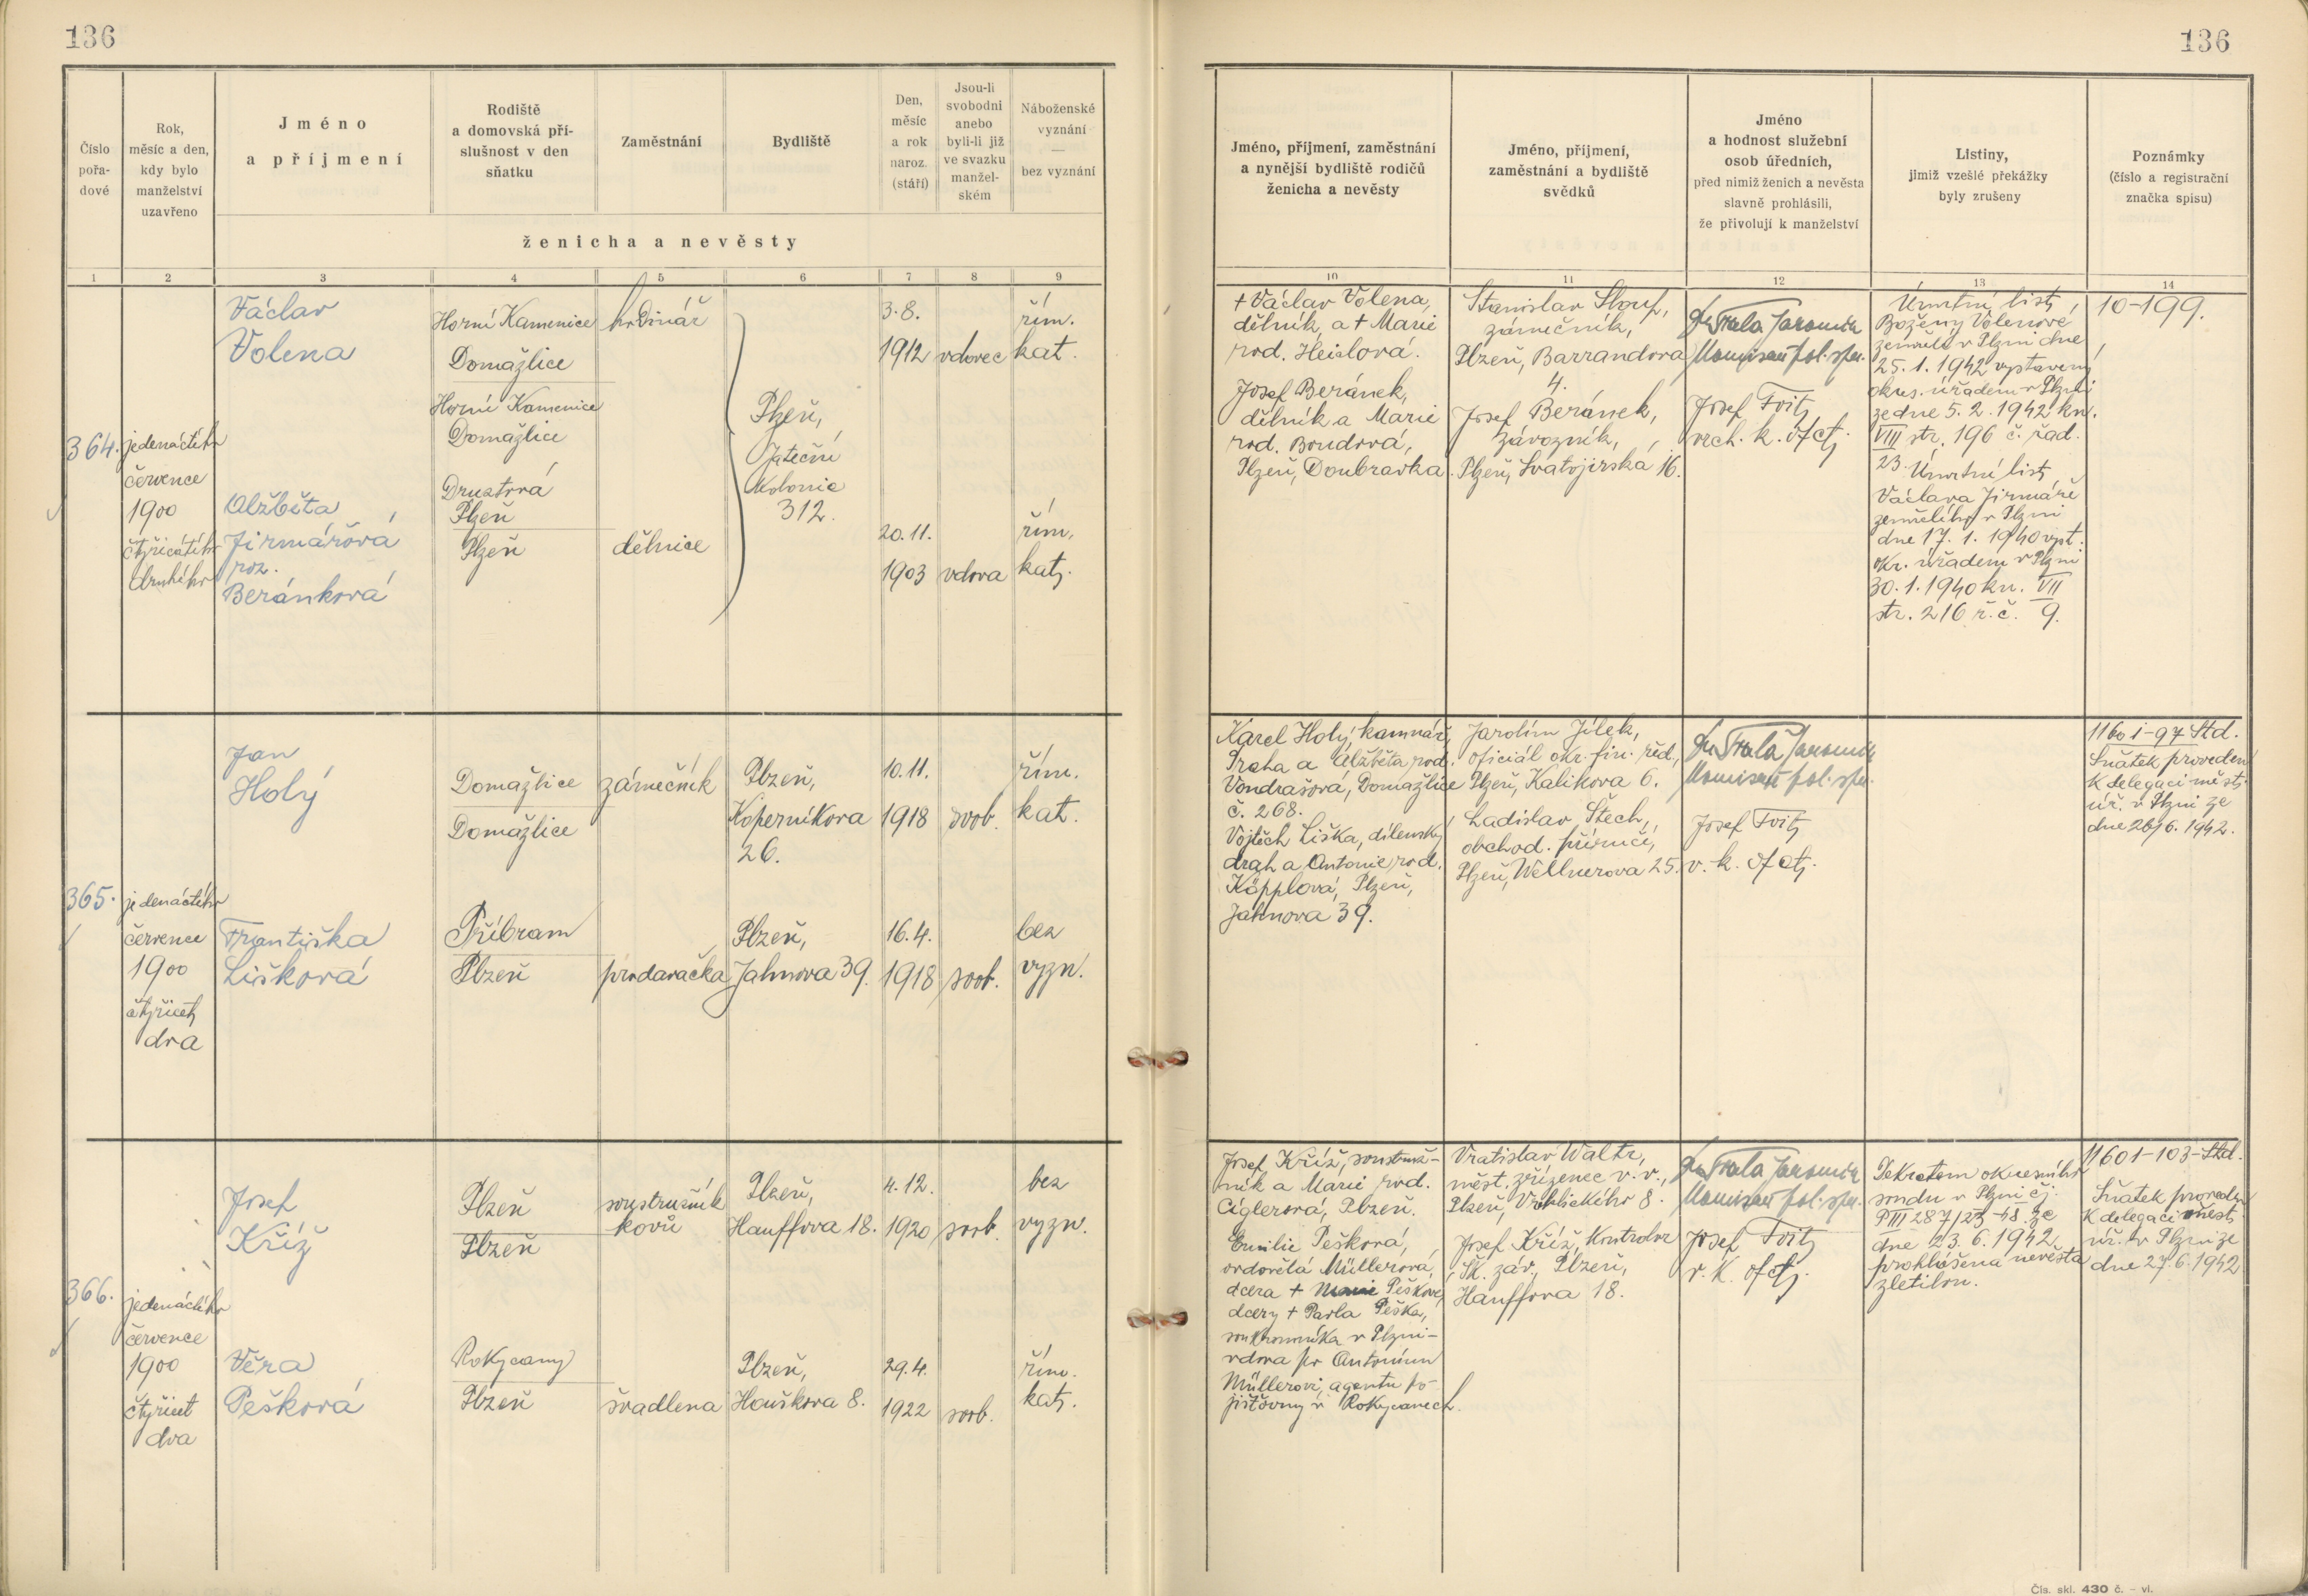 136
136
Číslo pořa-dové
Rok, měsíc a den, kdy bylo manželství uzavřeno
Jméno a příjmení
Rodiště a domovská pří-slušnost v den sňatku
Zaměstnání
Bydliště
Den, měsíc a rok naroz. (stáří)
Jsou-li svobodni anebo byli-li již ve svazku manžel-ském
Náboženské vyznání — bez vyznání
ženicha a nevěsty
Jméno, příjmení, zaměstnání a nynější bydliště rodičů ženicha a nevěsty
Jméno, příjmení, zaměstnání a bydliště svědků
Jméno a hodnost služební osob úředních, před nimiž ženich a nevěsta slavně prohlásili, že přivolují k manželství
Listiny, jimiž vzešlé překážky byly zrušeny
Poznámky (číslo a registrační značka spisu)
1 2 3 4 5 6 7 8 9
10 11 12 13 14
364.
jedenáctého
července
1900
čtyřicátého
druhého
Václav
Volena
Horní Kamenice
Domažlice
hodinář
3.8.
1912
vdovec
řím.
kat.
Horní Kamenice
Domažlice
Druztová
Plzeň
Plzeň
Plzeň,
Jateční
Kolonie
312.
Alžběta
Jirmářová
roz.
Beránková
dělnice
20.11.
1903
vdova
řím.
kat.
+ Václav Volena,
dělník, a + Marie
rod. Heidlová.
Josef Beránek,
dělník a Marie
rod. Boudová,
Plzeň, Doubravka.
Stanislav Sloup,
zámečník,
Plzeň, Barrandova
4.
Josef Beránek,
závozník,
Plzeň, Svatojirská 16.
Komisař pol. spr.
Josef Foit
vrch. k. ofctj.
Úmrtní list
Boženy Volenové
zemřelé v Plzni dne
25.1.1942 vystavený
okres. úřadem v Plzni
ze dne 5.2.1942 kn.
VIII str. 196 č. řad.
23. Úmrtní list
Václava Jirmáře
zemřelého v Plzni
dne 17.1.1940 vyst.
okr. úřadem v Plzni
30.1.1940 kn. VII
str. 216 ř. č. 9.
10-199.
365.
jedenáctého
července
1900
čtyřicet
dva
Jan
Holý
Domažlice
Domažlice
zámečník
Plzeň,
Koperníkova
26.
10.11.
1918
svob.
řím.
kat.
Františka
Lišková
Příbram
Plzeň
prodavačka
Plzeň,
Jahnova 39.
16.4.
1918
svob.
bez
vyzn.
Karel Holý, kamnář,
Praha a Alžběta rod.
Vondrašová, Domažlice
č. 268.
Vojtěch Liška, dílenský
drah a Antonie rod.
Köpplová, Plzeň,
Jahnova 39.
Jarolím Jílek,
oficiál okr. fin. řed.,
Plzeň, Kalikova 6.
Ladislav Štech,
obchod. příručí,
Plzeň, Wellnerova 25.
Komisař pol. spr.
Josef Foit
v. k. ofctj.
11601-97 Std.
Sňatek proveden
k delegaci měst.
úř. v Plzni ze
dne 26/6. 1942.
366.
jedenáctého
července
1900
čtyřicet
dva
Josef
Kříž
Plzeň
Plzeň
soustružník
kovů
Plzeň,
Hauffova 18.
4.12.
1920
svob.
bez
vyzn.
Věra
Pešková
Rokycany
Plzeň
švadlena
Plzeň,
Houškova 8.
29.4.
1922
svob.
řím.
kat.
Josef Kříž, soustruž-
ník a Marie rod.
Cíglerová, Plzeň.
Emilie Pešková,
ovdovělá Müllerová,
dcera + Marie Peškové,
dcery + Pavla Peška,
soukromníka v Plzni -
vdova po Antonínu
Müllerovi, agentu po-
jišťovny v Rokycanech.
Vratislav Waltr,
měst. zřízenec v. v.,
Plzeň, Vrchlického 8.
Josef Kříž, kontrolor
Šk. záv., Plzeň,
Hauffova 18.
Komisař pol. spr.
Josef Foit
v. k. ofctj.
Dekretem okresního
soudu v Plzni čj.
PIII 287/23-48 ze
dne 23.6.1942
prohlášena nevěsta
zletilou.
11601-103-Std.
Sňatek proveden
k delegaci měst.
úř. v Plzni ze
dne 27.6.1942
Čís. skl. 430 č. - vl.